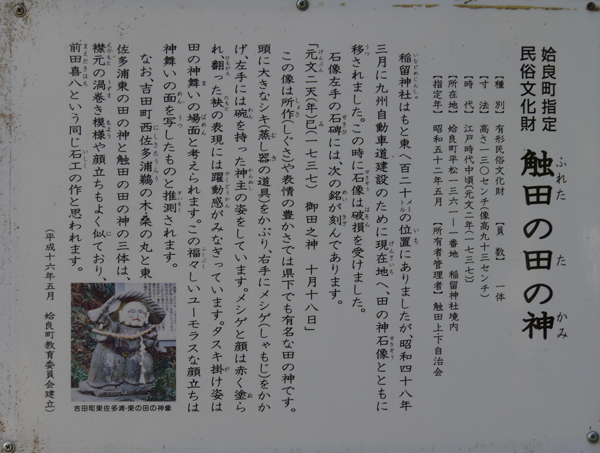 姶良町指定
民俗文化財
触田の田の神
ふれた
た
かみ
【種別】有形民俗文化財 【員数】一体
【寸法】高さ一三〇センチ(像高九十三センチ)
【時代】江戸時代中頃(元文二年(一七三七))
【所在地】姶良町平松一三六一ー一番地 稲留神社境内
【指定年】昭和五十二年五月 【所有者管理者】触田上・下自治会
稲留神社はもと東へ百二十メートルの位置にありましたが、昭和四十八年
三月に九州自動車道建設のために現在地へ、田の神石像とともに
移されました。この時に石像は破損を受けました。
石像左手の石碑には、次の銘が刻んであります。
「元文二天(年)巳(一七三七) 御田之神 十月十八日」
この像は所作(しぐさ)や表情の豊かさでは県下でも有名な田の神です。
頭に大きなシキ(蒸し器の道具)をかぶり、右手にメシゲ(しゃもじ)をかか
げ、左手には碗を持った神主の姿をしています。メシゲと顔は赤く塗ら
れ、翻った袂の表現には躍動感がみなぎっています。タスキ掛け姿は
田の神舞いの場面と考えられます。この福々しいユーモラスな顔立ちは
神舞いの面を写したものと推測されます。
なお、吉田町西佐多浦鵜の木桑の丸と東
佐多浦東の田の神と触田の田の神の三体は、
襟元の渦巻き模様や顔立ちもよく似ており、
前田喜八という同じ石工の作と思われます。
(平成十六年五月 姶良町教育委員会建立)
吉田町東佐多浦・東の田の神像